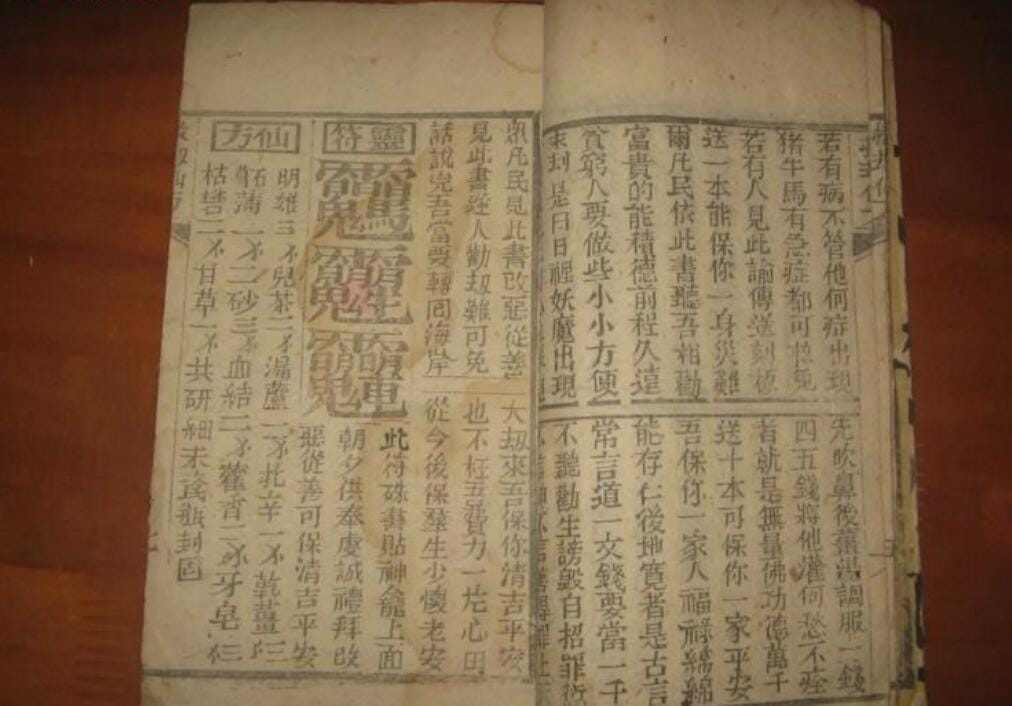 若有病不管他何症出現 先吹鼻後薑湯調服一錢
猪牛馬有急症都可救免 四五錢將他灌何愁不痊
若有人見此諭傳送刻板 者就是無量佛功德萬千
送一本能保你一身災難 送十本可保你一家平安
爾凡民依此書聽吾相勸 吾保你一家人福祿綿綿
富貴的能積德前程久遠 能存仁後地寬者是古言
貧窮人要做些小小方便 常言道一文錢要當一千
末刼是日日裡妖魔出現 不聽勸生謗毀自招罪
衆凡民見此書改惡從善 大刼來吾保你清吉平安
見此書逐人勸刼難可免 也不枉吾費力一片心田
話說完吾當要轉回海岸 從今後保羣生少懷老安
靈符
此符硃書貼神龕上面
朝夕供奉虔誠禮拜改
惡從善可保清吉平安
仙方
明雄三 兒茶二 漏蘆一 北辛一 乾薑
石菖蒲一 二砂三 血結二 藿香二 牙皂三
枯礬一 甘草一 共研細末瓷瓶封固